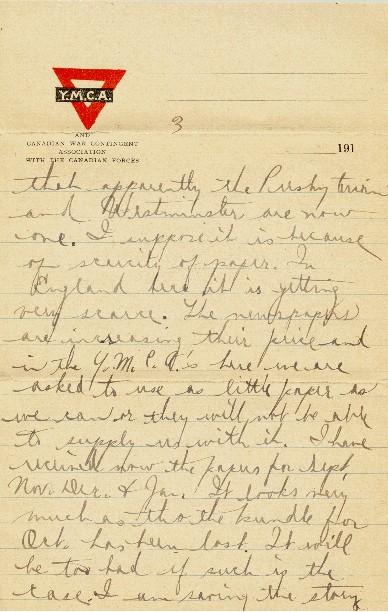 Y.M.C.A.
AND
CANADIAN WAR CONTINGENT
ASSOCIATION
WITH THE CANADIAN FORCES
3
191
that apparently the Presbyterian
and Westminster are now
one. I suppose it is because
of scarcity of paper. In
England here it is getting
very scarce. The newspapers
are increasing their price and
in the Y.M.C.A.'s here we are
asked to use as little paper as
we can or they will not be able
to supply us with it. I have
received now the papers for Sept,
Nov. Dec. & Jan. It looks very
much as tho the bundle for
Oct. has been lost. It will
be too bad if such is the
case. I am saving the story